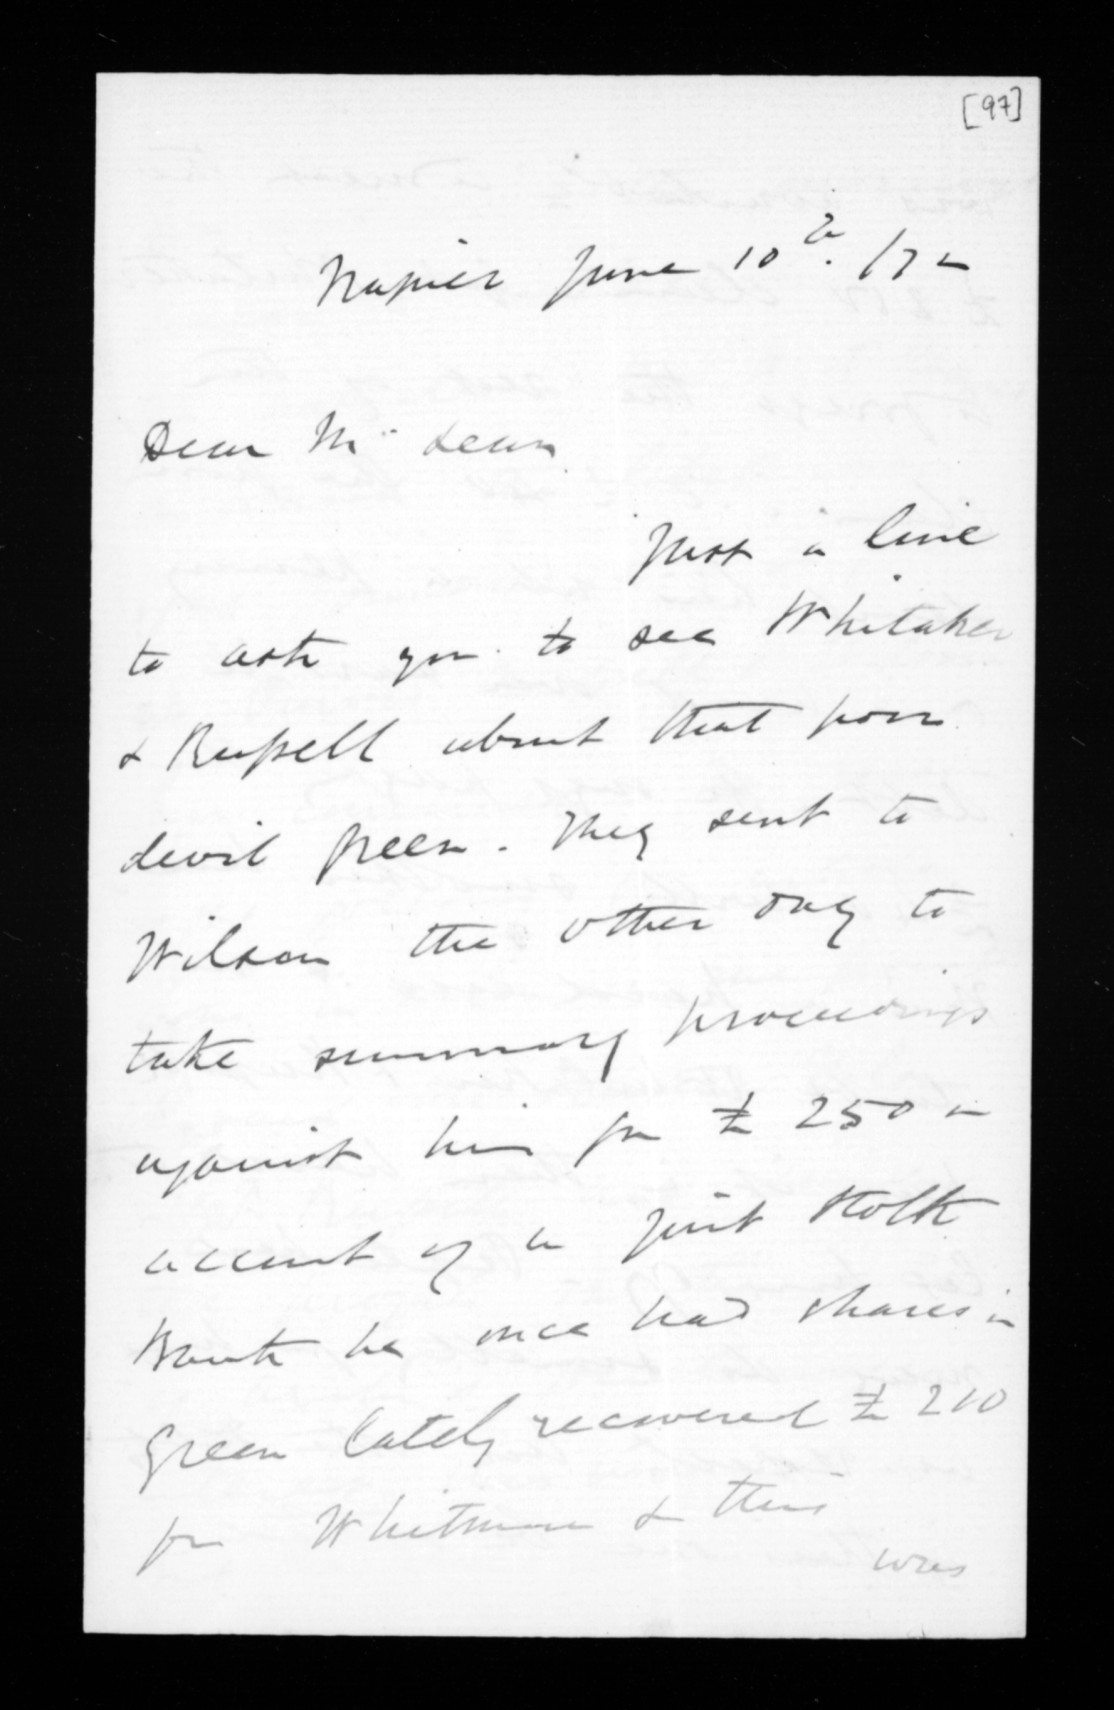 [97]
Napier June 10th. /72
Dear Mr Lean
Just a line
to ask you to see Whitaker
& Russell about that poor
devil Green. They sent to
Wilson the other day to
take summary proceedings
against him for £250 on
account of a joint Stock
Bank he once had shares in
Green lately recovered £210
for Whitmore & this
was